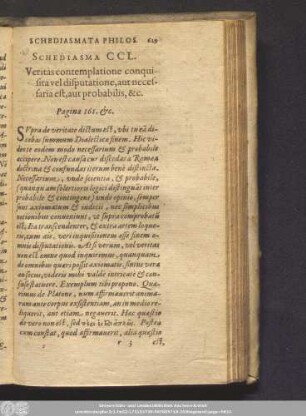 SCHEDIASMATA PHILOS. 629
SCHEDIASMA CCL.
Veritas contemplatione conqui
sita vel disputatione, aut neces-
saria est, aut probabilis, &c.
Pagina 161. &c.
SVpra de veritate dictum est, vbi
summum Dialectica finem. Hic
eodem modo necessarium & probabile
accipere. Non est causa cur discedas a Ramea
doctrina & confundas iterum bene distincta.
Necessarium, vnde scientia, & probabile,
(quanquam solertiores logici distinguãt inter
probabile & contingens) vnde opinio, semper
sunt axiomatum & iudicii, nec simplicibus
notionibus conueniunt, vt supra comprobatũ
est,
cum ais, veri inquisitionem esse finem o-
mnis disputationis. At si verum, vel veritas
non est omne quod inquirimus, quanquam
de omnibus quæri possit axiomatis, sintne vera
an ficta, videris mihi valde intricatè & con-
fusè statuere. Exemplum tibi propono. Quæ-
rimus de Platone, num affirmauerit animas
ante corpus existentiam, an in medio re-
liquerit, aut etiam negauerit. Hæc quæstio
de vero non est, sed Postea
cum constat, quod affirmauerit, alia quæstio
r 3 est,